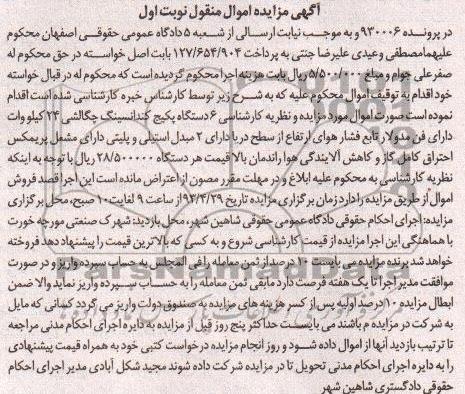 آگهی مزایده اموال منقول نوبت اول
در پرونده ۹۳۰۰۰۶ و به موجب نیابت ارسالی از شعبه ۵ دادگاه عمومی حقوقی اصفهان محکوم
علیهما مصطفی وعیدی علیرضا جنتی به پرداخت ۱۲۷/۶۵۴/۹۰۴ بابت اصل خواسته در حق محکوم له
صفرعلی جوام و مبلغ ۵/۵۰۰/۰۰۰ ریال بابت هزینه اجرا محکوم گردیده است که محکوم له در قبال خواسته
خود اقدام به توقیف اموال محکوم علیه که به شرح زیر توسط کارشناس خبره کارشناسی شده است اقدام
نموده است صورت اموال مورد مزایده و نظریه کارشناسی ۶ دستگاه پکیج کندانسینگ چگالشی ۲۴ کیلو وات
دارای فن مدولار تابع فشار هوای ارتفاع از سطح دریا دارای ۲ مبدل استیلی و پلیتی دارای مشعل پریمکس
احتراق کامل گاز و کاهش آلایندگی هوا راندمان بالا قیمت هر دستگاه ۲۸/۵۰۰۰۰۰ ریال با توجه به اینکه
نظریه کارشناسی به محکوم علیه ابلاغ و در مهلت مقرر مصون از اعتراض مانده است این اجرا قصد فروش
اموال از طریق مزایده را دارد زمان برگزاری مزایده تاریخ ۹۳/۴/۲۹ از ساعت ۹ لغایت ۱۰ صبح، محل برگزاری
مزایده: اجرای احکام حقوقی دادگاه عمومی حقوقی شاهین شهر، محل بازدید: شهرک صنعتی مورچه خورت
با هماهنگی این اجرا مزایده از قیمت کارشناسی شروع و به کسی که بالاترین قیمت را پیشنهاد دهد فروخته
خواهد شد برنده مزایده می بایست ۱۰ درصد از ثمن معامله را فی المجلس به حساب سپرده واریز و در صورت
موافقت مدیر اجرا تا یک هفته فرصت دارد مابقی ثمن معامله را به حساب سپرده واریز نماید والا ضمن
ابطال مزایده ۱۰ درصد اولیه پس از کسر هزینه های مزایده به صندوق دولت واریز می گردد کسانی که مایل
به شرکت در مزایده م باشند می بایست حداکثر پنج روز قبل از مزایده به دایره اجرای احکام مدنی مراجعه
تا ترتیب بازدید آنها از اموال داده شود و روز انجام مزایده درخواست کتبی خود به همراه قیمت پیشنهادی
را به دایره اجرای احکام مدنی تحویل تا در مزایده شرکت داده شوند مجید شکل آبادی مدیر اجرای احکام
حقوقی دادگستری شاهین شهر
ParsNamadData